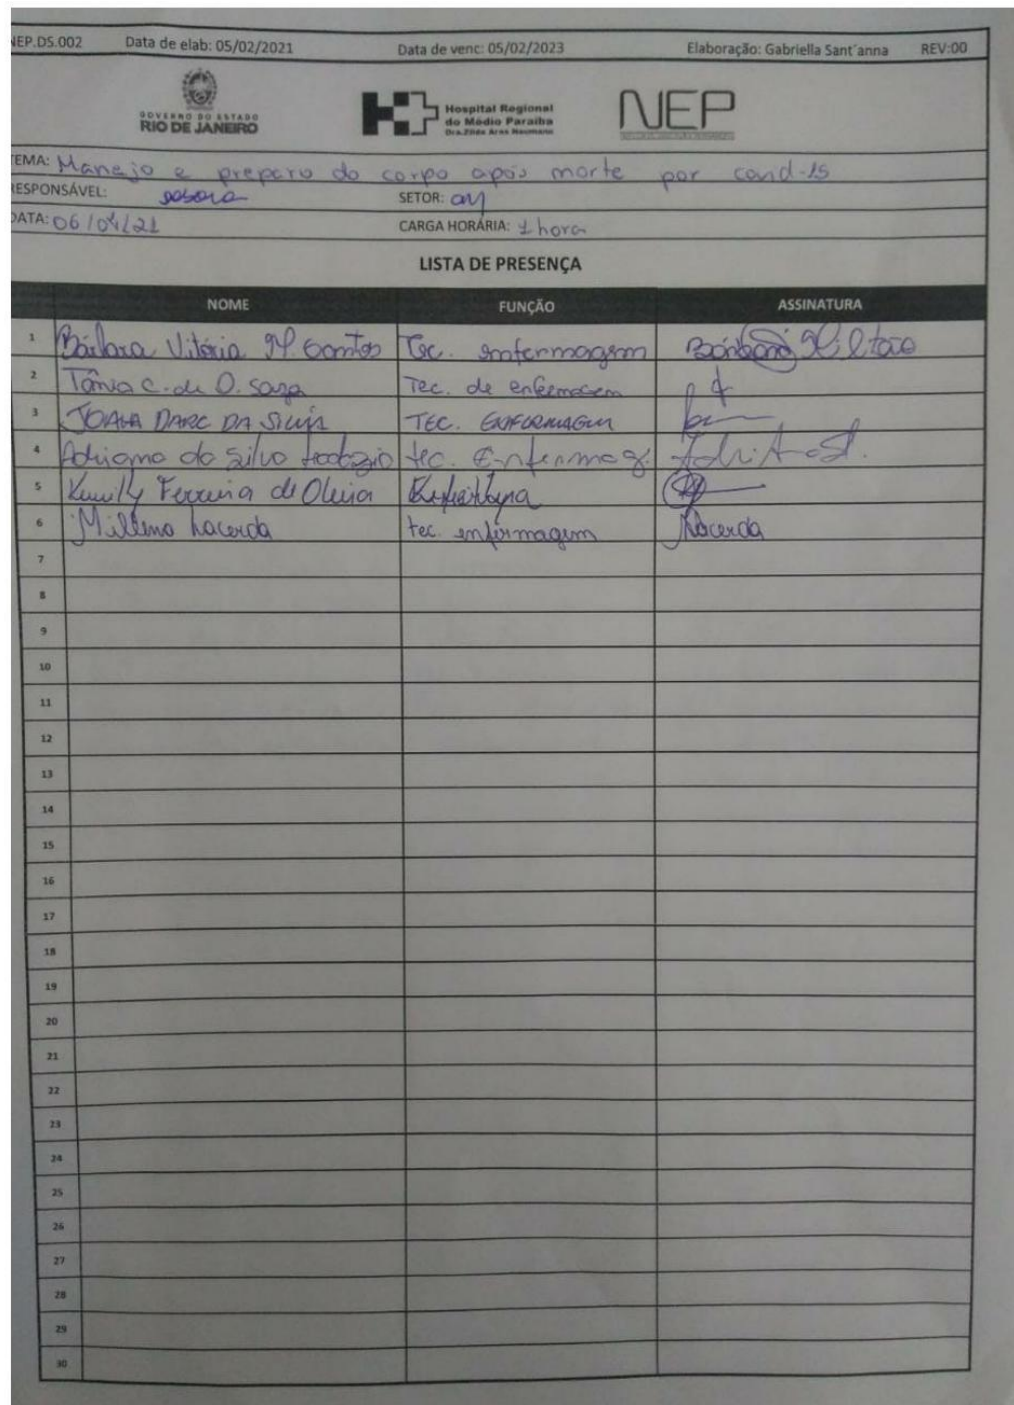 NEP.DS.002 Data de elab: 05/02/2021 Data de venc: 05/02/2023 Elaboração: Gabriella Sant´anna REV:00
GOVERNO DO ESTADO
RIO DE JANEIRO
Hospital Regional
do Médio Paraíba
Dra. Zilda Arns Neumann
NEP
TEMA: Manejo e preparo do corpo após morte por covid-19
RESPONSÁVEL: SETOR:
DATA: 06/04/21 CARGA HORÁRIA: 1 hora
LISTA DE PRESENÇA
NOME FUNÇÃO ASSINATURA
1 Bárbara Vitória M. Santos Tec. enfermagem
2 Tânia C. de O. Tec. de enfermagem
3 JOANA DARC DA SILVA TEC. ENFERMAGEM
4 da Silva tec. Enfermag.
5 Ferreira de
6 Lacerda tec. enfermagem Lacerda
7
8
9
10
11
12
13
14
15
16
17
18
19
20
21
22
23
24
25
26
27
28
29
30